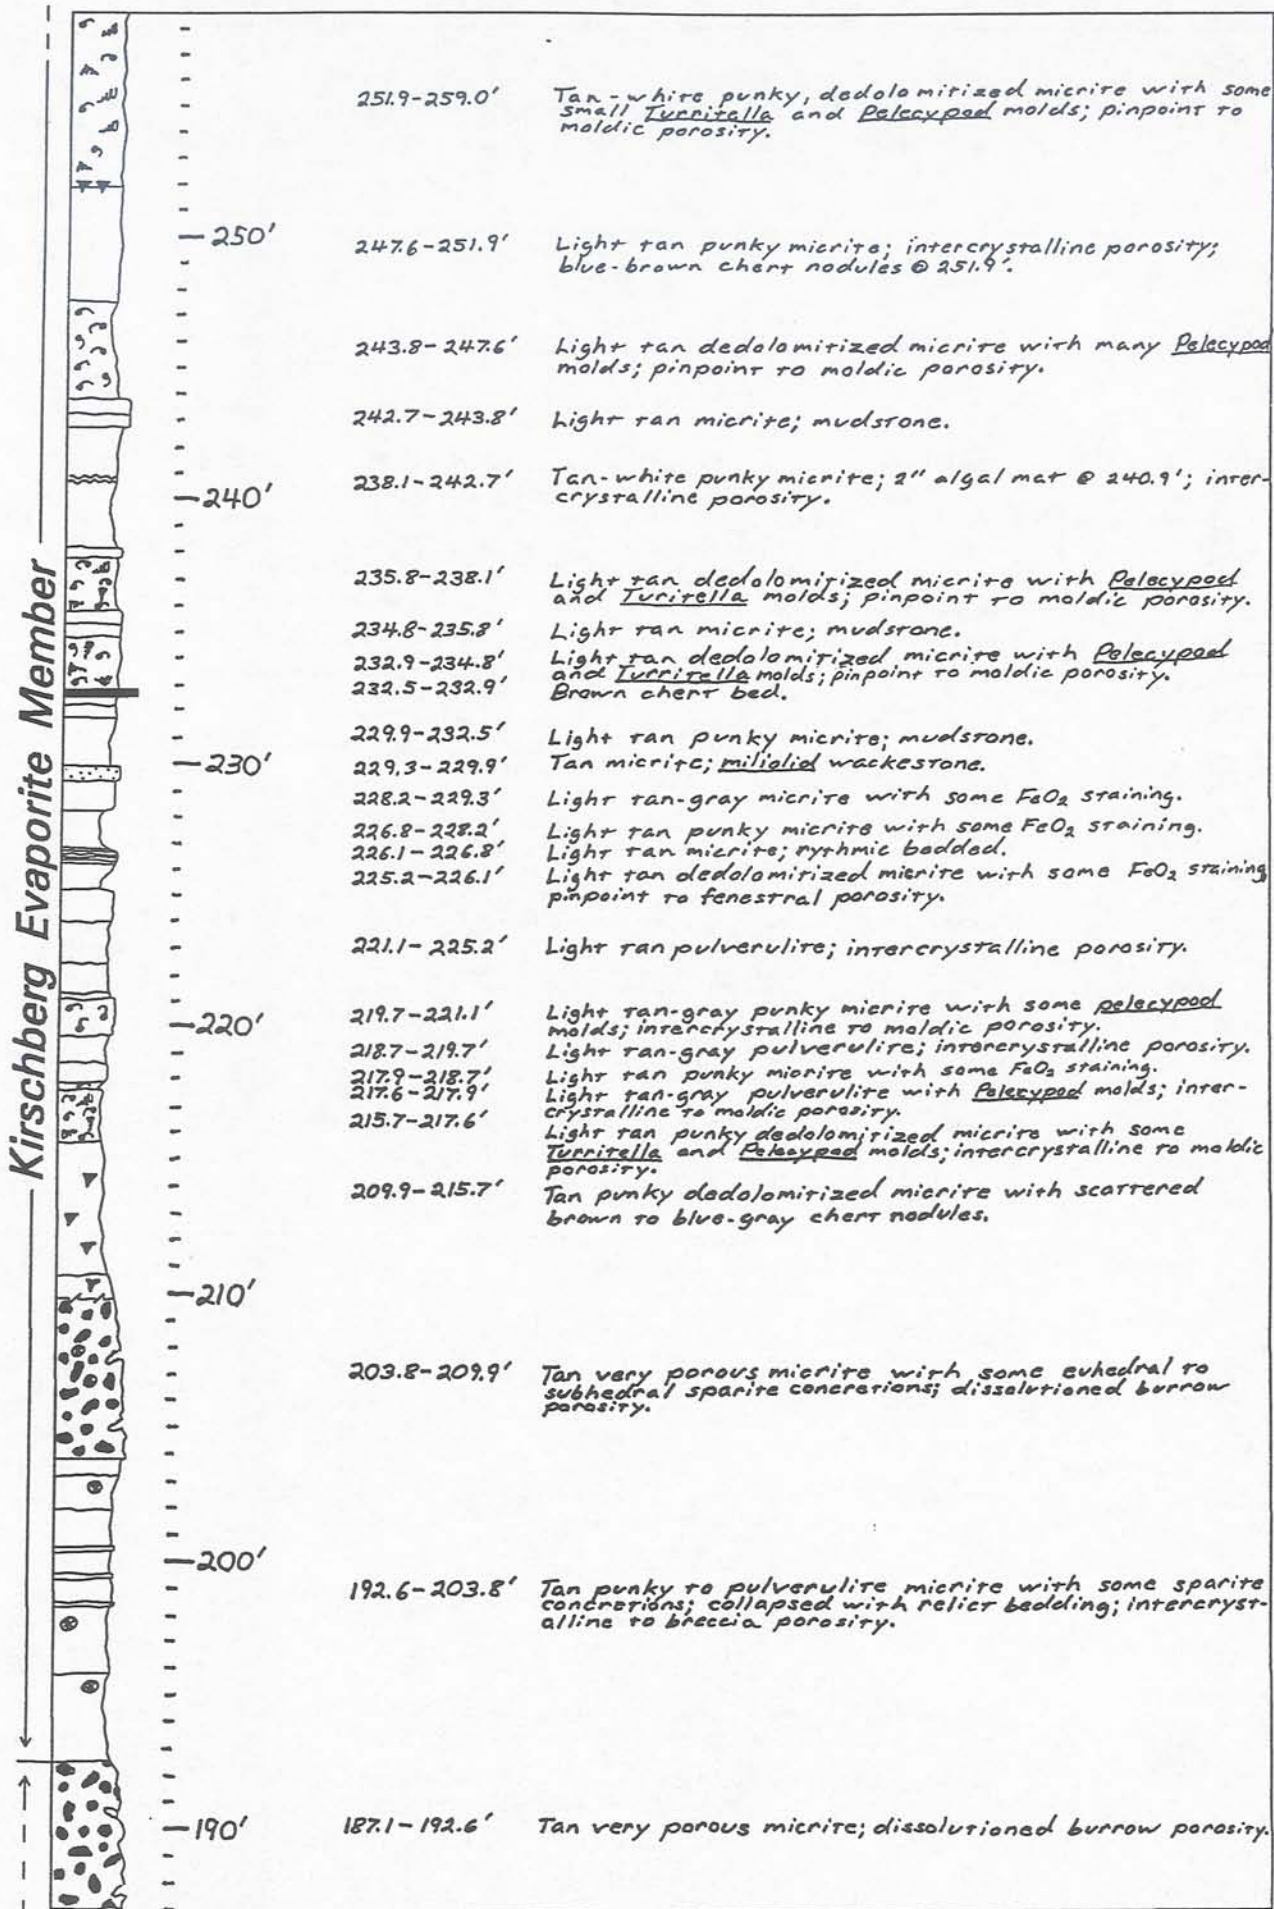 Kirschberg Evaporite Member
251.9-259.0' Tan-white punky, dedolomitized micrite with some
small Turritella and Pelecypod molds; pinpoint to
moldic porosity.
250'
247.6-251.9' Light tan punky micrite; intercrystalline porosity;
blue-brown chert nodules @ 251.9'.
243.8-247.6' Light tan dedolomitized micrite with many Pelecypod
molds; pinpoint to moldic porosity.
242.7-243.8' Light tan micrite; mudstone.
238.1-242.7' Tan-white punky micrite; 2" algal mat @ 240.9'; inter-
240'
crystalline porosity.
235.8-238.1' Light tan dedolomitized micrite with Pelecypod
and Turitella molds; pinpoint to moldic porosity.
234.8-235.8' Light tan micrite; mudstone.
232.9-234.8' Light tan dedolomitized micrite with Pelecypod
and Turritella molds; pinpoint to moldic porosity.
232.5-232.9' Brown chert bed.
229.9-232.5' Light tan punky micrite; mudstone.
230'
229.3-229.9' Tan micrite; miliolid wackestone.
228.2-229.3' Light tan-gray micrite with some FeO2 staining.
226.8-228.2' Light tan punky micrite with some FeO2 staining.
226.1-226.8' Light tan micrite; rythmic bedded.
225.2-226.1' Light tan dedolomitized micrite with some FeO2 staining,
pinpoint to fenestral porosity.
221.1-225.2' Light tan pulverulite; intercrystalline porosity.
220'
219.7-221.1' Light tan-gray punky micrite with some pelecypod
molds; intercrystalline to moldic porosity.
218.7-219.7' Light tan-gray pulverulite; intercrystalline porosity.
217.9-218.7' Light tan punky micrite with some FeO2 staining.
217.6-217.9' Light tan-gray pulverulite with Pelecypod molds; inter-
crystalline to moldic porosity.
215.7-217.6' Light tan punky dedolomitized micrite with some
Turritella and Pelecypod molds; intercrystalline to moldic
porosity.
209.9-215.7' Tan punky dedolomitized micrite with scattered
brown to blue-gray chert nodules.
210'
203.8-209.9' Tan very porous micrite with some euhedral to
subhedral sparite concretions; dissolutioned burrow
porosity.
200'
192.6-203.8' Tan punky to pulverulite micrite with some sparite
concretions; collapsed with relict bedding; intercryst-
alline to breccia porosity.
190'
187.1-192.6' Tan very porous micrite; dissolutioned burrow porosity.